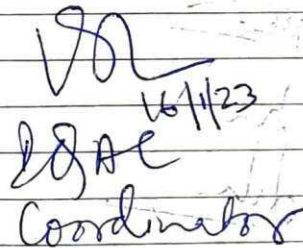 16/1/23
IQAC
Coordinator